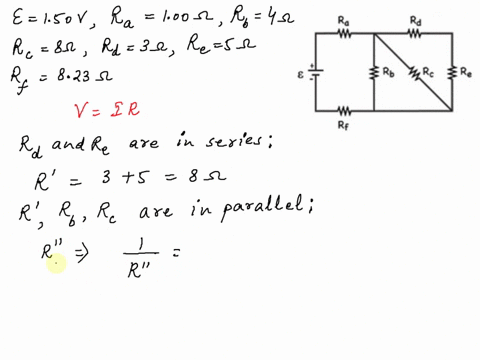 ε = 1.50 V, Ra = 1.00 Ω, Rb = 4 Ω
Rc = 8 Ω, Rd = 3 Ω, Re = 5 Ω
Rf = 8.23 Ω
V = IR
Rd and Re are in series;
R' = 3 + 5 = 8 Ω
R', Rb, Rc are in parallel;
R'' ⇒ 1/R'' =
Ra Rd
ε + - Rb Rc Re
Rf